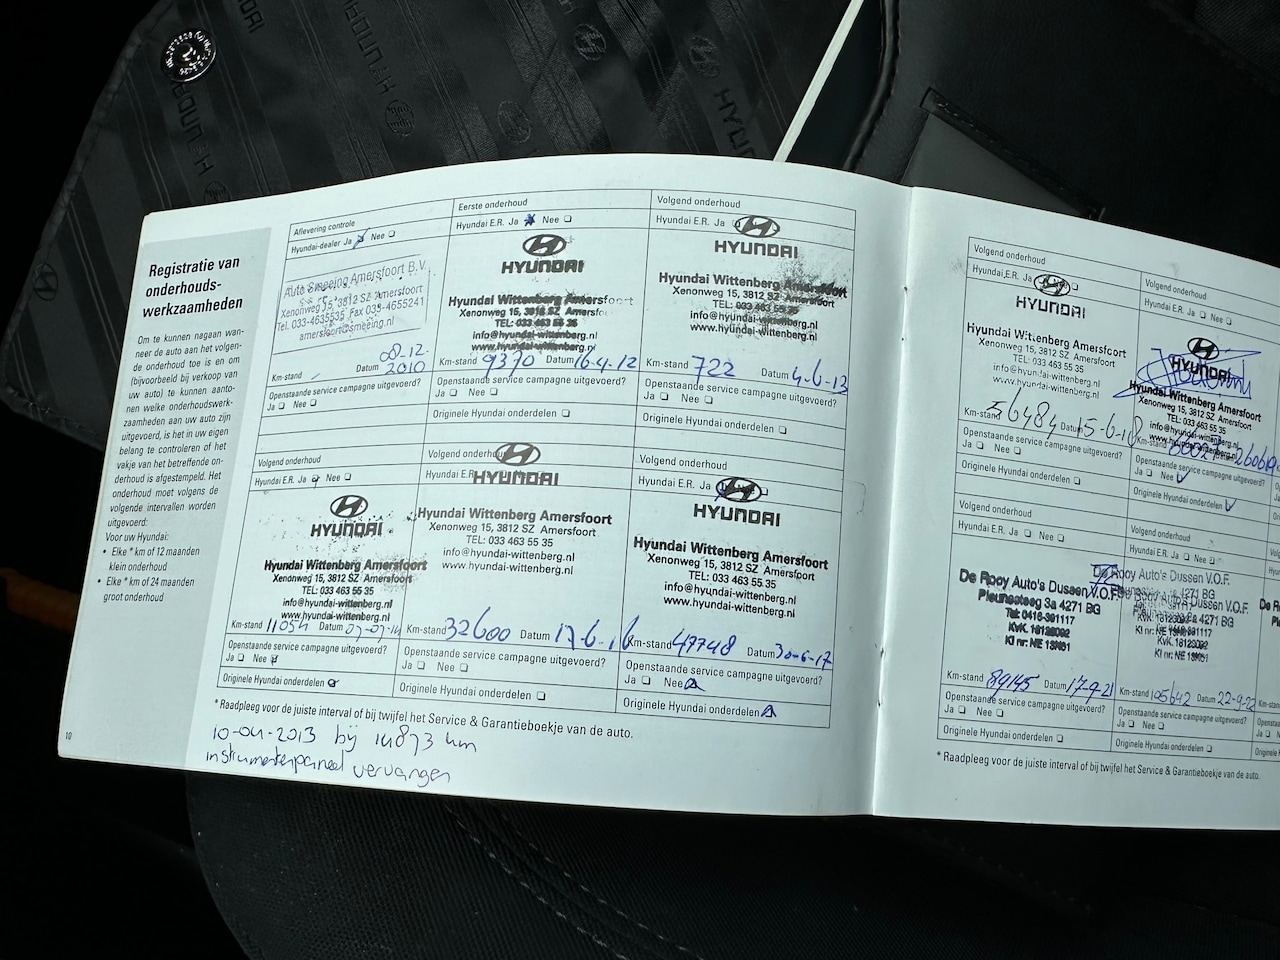 HYUNDAI
HYUNDAI
HYUNDAI
HYUNDAI
Registratie van
onderhouds-
werkzaamheden
Om te kunnen nagaan wan-
neer de auto aan het volgen-
de onderhoud toe is en om
(bijvoorbeeld bij verkoop van
uw auto) te kunnen aanto-
nen welke onderhoudswerk-
zaamheden aan uw auto zijn
uitgevoerd, is het in uw eigen
belang te controleren of het
vakje van het betreffende on-
derhoud is afgestempeld. Het
onderhoud moet volgens de
volgende intervallen worden
uitgevoerd:
Voor uw Hyundai:
• Elke * km of 12 maanden
klein onderhoud
• Elke * km of 24 maanden
groot onderhoud
10
Aflevering controle
Hyundai-dealer Ja Nee ❏
Auto Smeeing Amersfoort B.V.
Xenonweg 15, 3812 SZ Amersfoort
Tel. 033-4635535 Fax 033-4655241
amersfoort@smeeing.nl
Km-stand Datum 08-12-2010
Openstaande service campagne uitgevoerd?
Ja ❏ Nee ❏
Eerste onderhoud
Hyundai E.R. Ja Nee ❏
HYUNDAI
Hyundai Wittenberg Amersfoort
Xenonweg 15, 3812 SZ Amersfoort
TEL: 033 463 55 35
info@hyundai-wittenberg.nl
www.hyundai-wittenberg.nl
Km-stand 9370 Datum 16-4-12
Openstaande service campagne uitgevoerd?
Ja ❏ Nee ❏
Originele Hyundai onderdelen ❏
Volgend onderhoud
Hyundai E.R. Ja
HYUNDAI
Hyundai Wittenberg Amersfoort
Xenonweg 15, 3812 SZ Amersfoort
TEL: 033 463 55 35
info@hyundai-wittenberg.nl
www.hyundai-wittenberg.nl
Km-stand 722 Datum 4-6-13
Openstaande service campagne uitgevoerd?
Ja ❏ Nee ❏
Originele Hyundai onderdelen ❏
Volgend onderhoud
Hyundai E.R. Ja Nee ❏
HYUNDAI
Hyundai Wittenberg Amersfoort
Xenonweg 15, 3812 SZ Amersfoort
TEL: 033 463 55 35
info@hyundai-wittenberg.nl
www.hyundai-wittenberg.nl
Km-stand 11054 Datum 07-07-14
Openstaande service campagne uitgevoerd?
Ja ❏ Nee
Originele Hyundai onderdelen
Volgend onderhoud
Hyundai E.R.
HYUNDAI
Hyundai Wittenberg Amersfoort
Xenonweg 15, 3812 SZ Amersfoort
TEL: 033 463 55 35
info@hyundai-wittenberg.nl
www.hyundai-wittenberg.nl
Km-stand 32600 Datum 17-6-16
Openstaande service campagne uitgevoerd?
Ja ❏ Nee ❏
Originele Hyundai onderdelen ❏
Volgend onderhoud
Hyundai E.R. Ja
HYUNDAI
Hyundai Wittenberg Amersfoort
Xenonweg 15, 3812 SZ Amersfoort
TEL: 033 463 55 35
info@hyundai-wittenberg.nl
www.hyundai-wittenberg.nl
Km-stand 47748 Datum 30-6-17
Openstaande service campagne uitgevoerd?
Ja ❏ Nee
Originele Hyundai onderdelen
* Raadpleeg voor de juiste interval of bij twijfel het Service & Garantieboekje van de auto.
10-04-2013 bij 14873 km
instrumentenpaneel vervangen
Volgend onderhoud
Hyundai E.R. Ja
HYUNDAI
Hyundai Wittenberg Amersfoort
Xenonweg 15, 3812 SZ Amersfoort
TEL: 033 463 55 35
info@hyundai-wittenberg.nl
www.hyundai-wittenberg.nl
Km-stand 56484 Datum 15-6-18
Openstaande service campagne uitgevoerd?
Ja ❏ Nee ❏
Originele Hyundai onderdelen ❏
Volgend onderhoud
Hyundai E.R. Ja ❏ Nee ❏
HYUNDAI
Hyundai Wittenberg Amersfoort
Xenonweg 15, 3812 SZ Amersfoort
TEL: 033 463 55 35
info@hyundai-wittenberg.nl
www.hyundai-wittenberg.nl
Openstaande service campagne uitgevoerd?
Ja ❏ Nee
Originele Hyundai onderdelen
Volgend onderhoud
Hyundai E.R. Ja ❏ Nee ❏
De Rooy Auto's Dussen V.O.F.
Pleunssteeg 3a 4271 BG
Tel: 0416-391117
KvK. 18123092
Kl nr: NE 13N01
Km-stand 89145 Datum 17-9-21
Openstaande service campagne uitgevoerd?
Ja ❏ Nee ❏
Originele Hyundai onderdelen ❏
Volgend onderhoud
Hyundai E.R. Ja ❏ Nee ❏
De Rooy Auto's Dussen V.O.F.
Km-stand 105642 Datum 22-9-22
Openstaande service campagne uitgevoerd?
Ja ❏ Nee ❏
Originele Hyundai onderdelen ❏
* Raadpleeg voor de juiste interval of bij twijfel het Service & Garantieboekje van de auto.